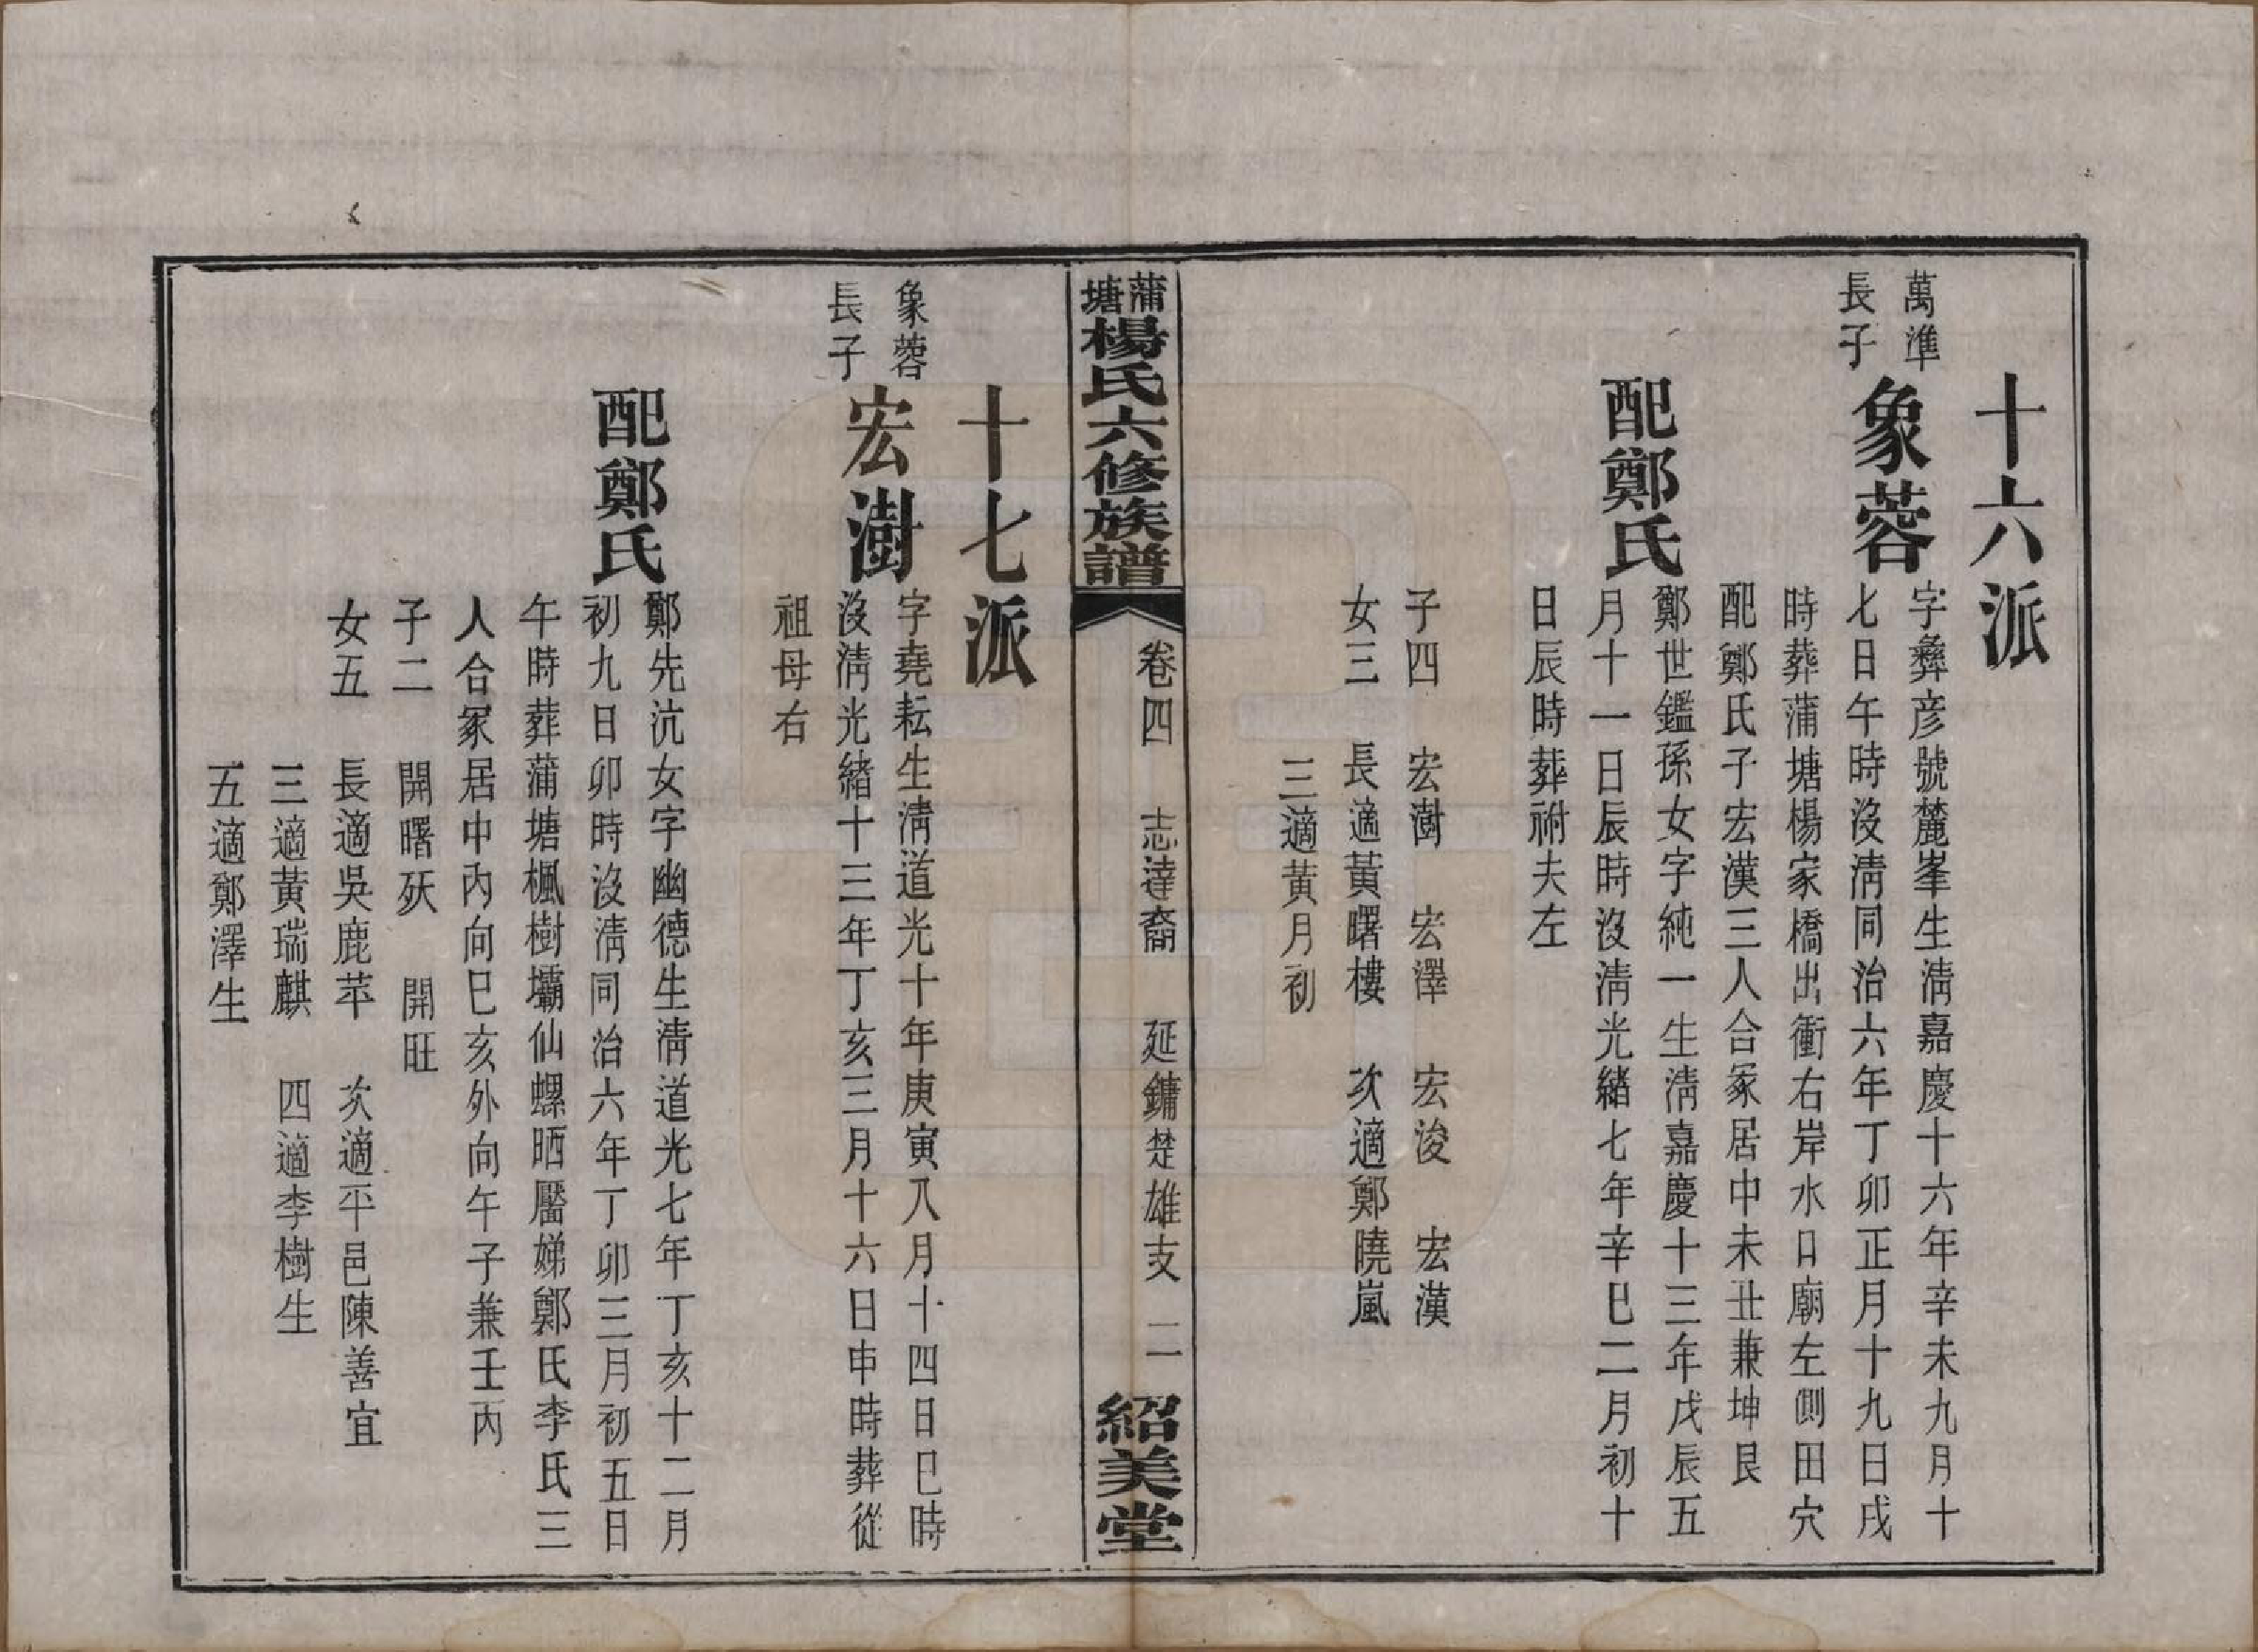 十六派
萬準
長子
象蓉
字彝彥號麓峯生淸嘉慶十六年辛未九月十
七日午時沒淸同治六年丁卯正月十九日戌
時葬蒲塘楊家橋出衝右岸水口廟左側田穴
配鄭氏子宏漢三人合冢居中未丑兼坤艮
配鄭氏
鄭世鑑孫女字純一生淸嘉慶十三年戊辰五
月十一日辰時沒淸光緒七年辛巳二月初十
日辰時葬祔夫左
子四 宏澍 宏澤 宏浚 宏漢
女三 長適黃曙樓 次適鄭曉嵐
三適黃月初
蒲塘楊氏六修族譜
卷四 志達裔 延鏞楚雄支 二
紹美堂
十七派
象蓉
長子
宏澍
字堯耘生淸道光十年庚寅八月十四日巳時
沒淸光緒十三年丁亥三月十六日申時葬從
祖母右
配鄭氏
鄭先沆女字幽德生淸道光七年丁亥十二月
初九日卯時沒淸同治六年丁卯三月初五日
午時葬蒲塘楓樹壩仙螺晒靨娣鄭氏李氏三
人合冢居中內向巳亥外向午子兼壬丙
子二 開曙殀 開旺
女五 長適吳鹿苹 次適平邑陳善宜
三適黃瑞麒 四適李樹生
五適鄭澤生